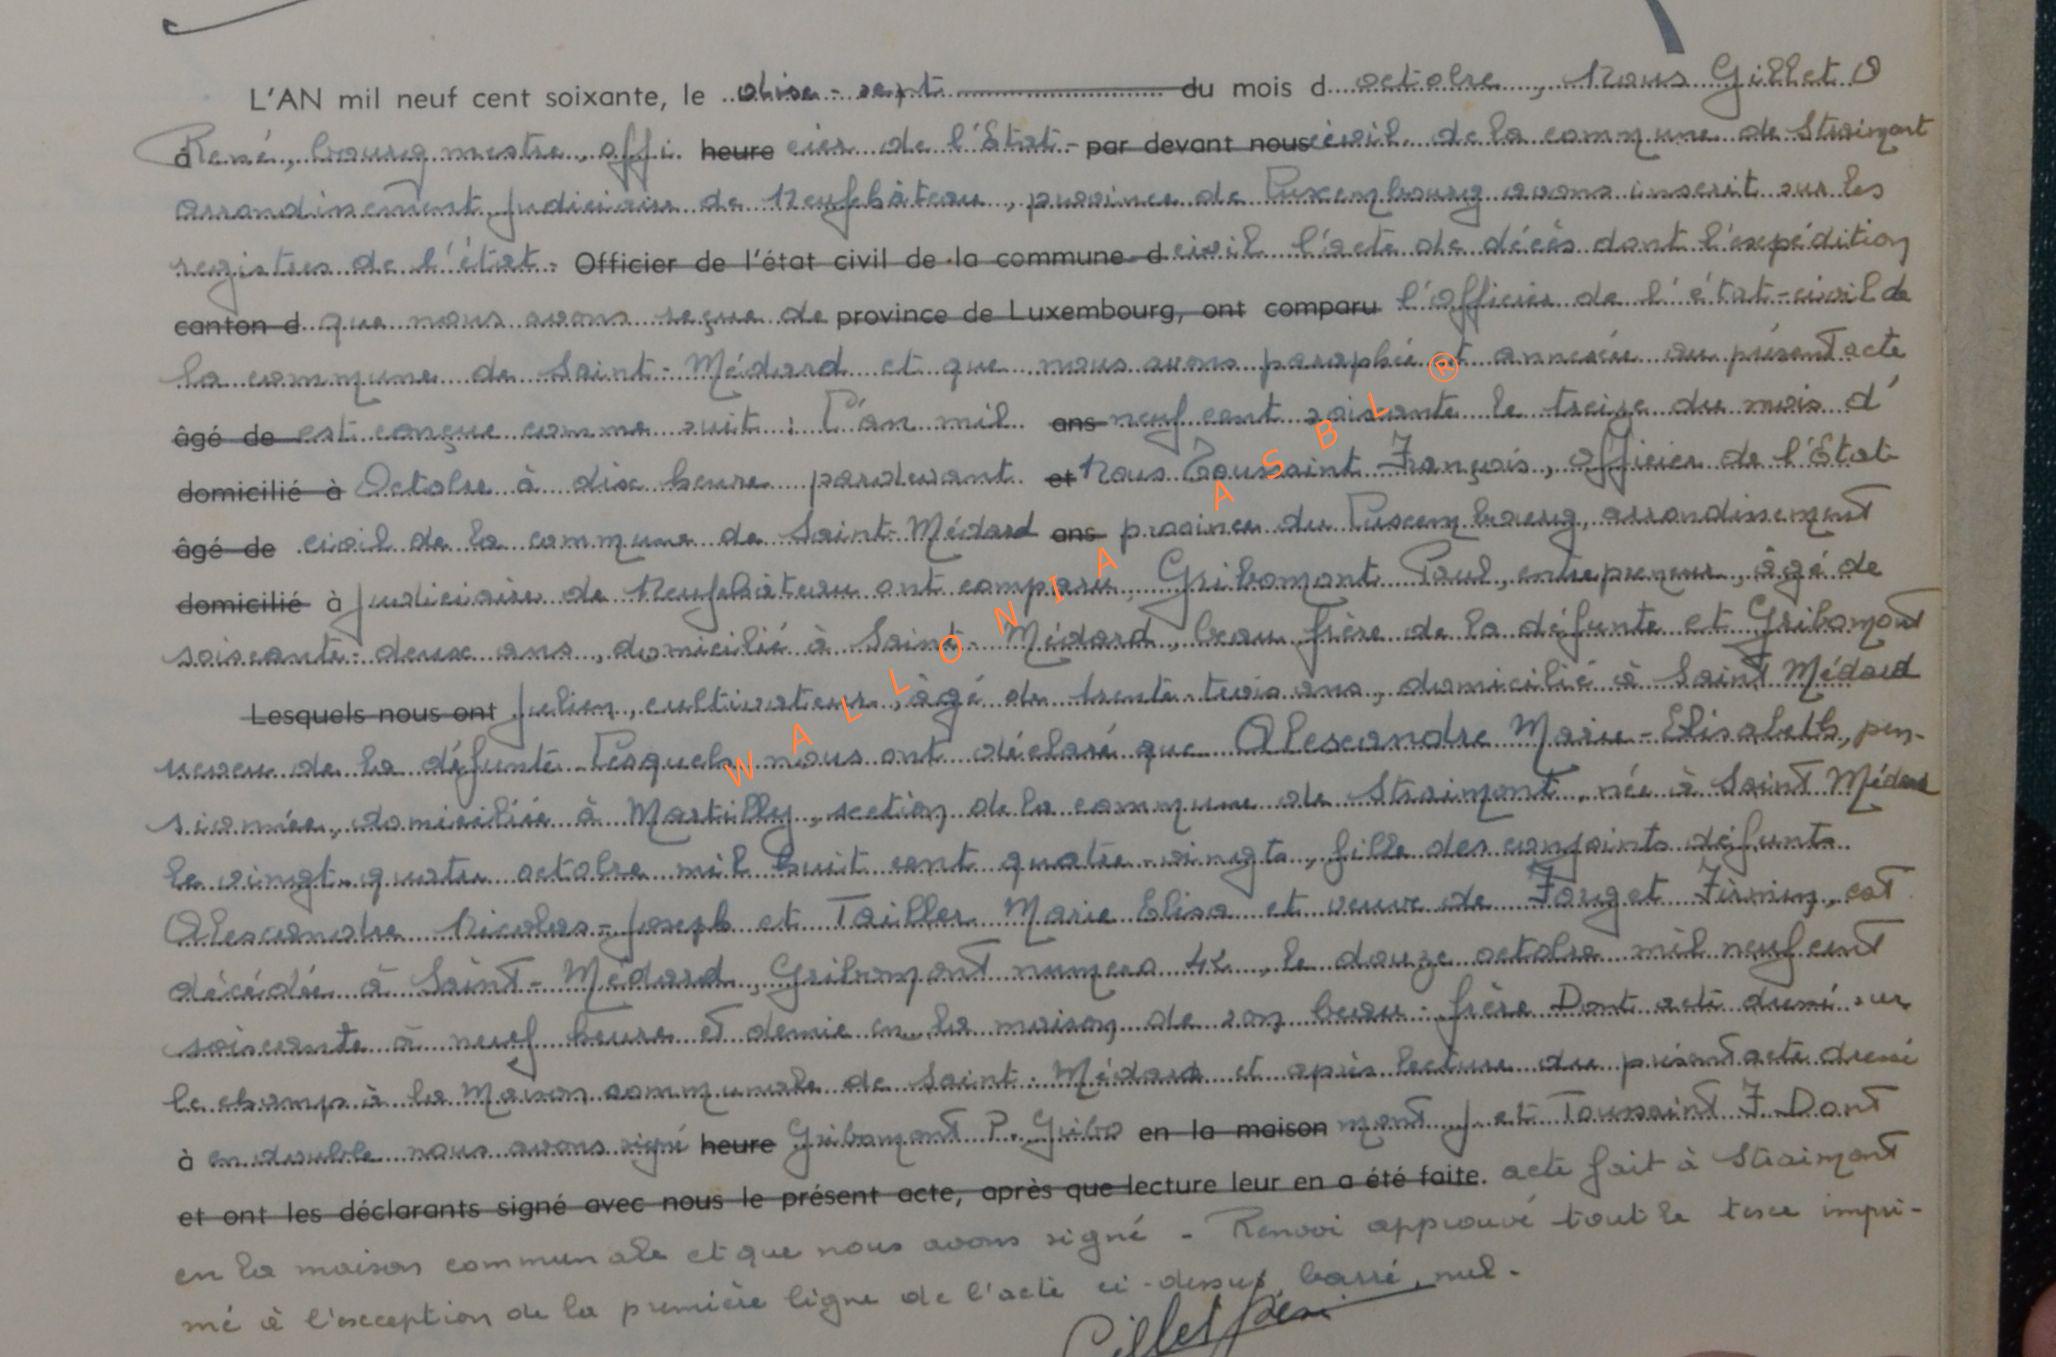 L'AN mil neuf cent soixante, le dix-sept du mois d octobre, Nous Gillet
à René, bourgmestre, offi heure cier de l'Etat- par devant nous civil de la commune de Straimont
arrondissement judiciaire de Neufchâteau, province de Luxembourg avons inscrit sur les
registres de l'état- Officier de l'état civil de la commune d civil l'acte de décès dont l'expédition
canton d que nous avons reçue de province de Luxembourg, ont comparu l'officier de l'état-civil de
la commune de Saint-Médard et que nous avons paraphée et annexée au présent acte
âgé de est conçue comme suit : L'an mil ans neuf cent soixante le treize du mois d'
domicilié à Octobre à dix heure pardevant et Nous Toussaint François, officier de l'Etat
âgé de civil de la commune de Saint-Médard ans province du Luxembourg, arrondissement
domicilié à judiciaire de Neufchâteau ont comparu, Gribomont Paul, entrepreneur, âgé de
soixante-deux ans, domicilié à Saint-Médard, beau frère de la défunte et Gribomont
Lesquels nous ont Julien, cultivateur, âgé de trente-trois ans, domicilié à Saint Médard
neveu de la défunte Lesquels nous ont déclaré que Alexandre Marie-Elisabeth, pen-
sionnée, domiciliée à Martilly, section de la commune de Straimont, née à Saint Médard
le vingt-quatre octobre mil huit cent quatre-vingts, fille des conjoints défunts
Alexandre Nicolas-Joseph et Tailler Marie Elisa et veuve de Fouget Firmin, est
décédée à Saint-Médard, Gribomont numero 42, le douze octobre mil neuf cent
soixante à neuf heure et demie en la maison de son beau-frère Dont acte dressé sur
le champ à la Maison communale de Saint-Médard et après lecture du présent acte dressé
à en double nous avons signé heure Gribomont P. Gribo en la maison mont J et Toussaint F Dont
et ont les déclarants signé avec nous le présent acte, après que lecture leur en a été faite. acte fait à Straimont
en la maison communale et que nous avons signé - Renvoi approuvé tout le texte impri-
mé à l'exception de la première ligne de l'acte ci-dessus, barré, nul.
Gillet René
WALLONIA ASBL ®